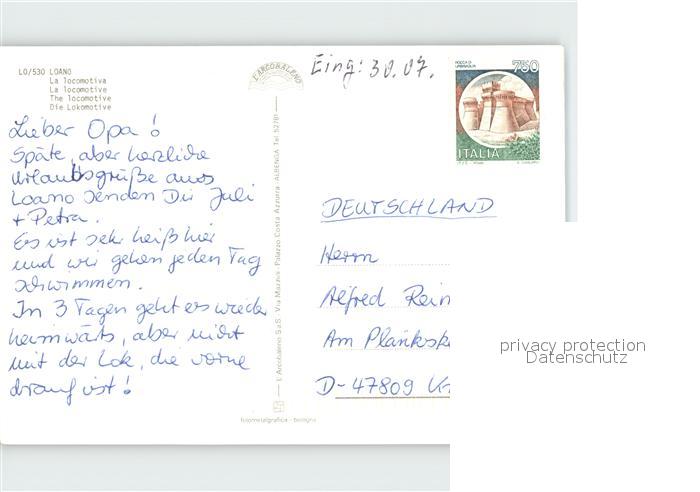 LO/530 LOANO
La locomotiva
La locomotive
The locomotive
Die Lokomotive
Lieber Opa!
Späte, aber herzliche
Urlaubsgrüße aus
Loano senden Dir Juli
+ Petra.
Es ist sehr heiß hier
und wir gehen jeden Tag
schwimmen.
In 3 Tagen geht es wieder
heimwärts, aber nicht
mit der Lok, die vorne
drauf ist!
L'ARCOBALENO
L'Arcobaleno S.a.S. Via Mazzini - Palazzo Costa Azzurra - ALBENGA Tel. 52781
fotometalgrafica - Bologna
Eing: 30.07.
ROCCA DI
URBISAGLIA
750
ITALIA
DEUTSCHLAND
Herrn
Alfred Rein
Am
D-47809
privacy protection
Datenschutz